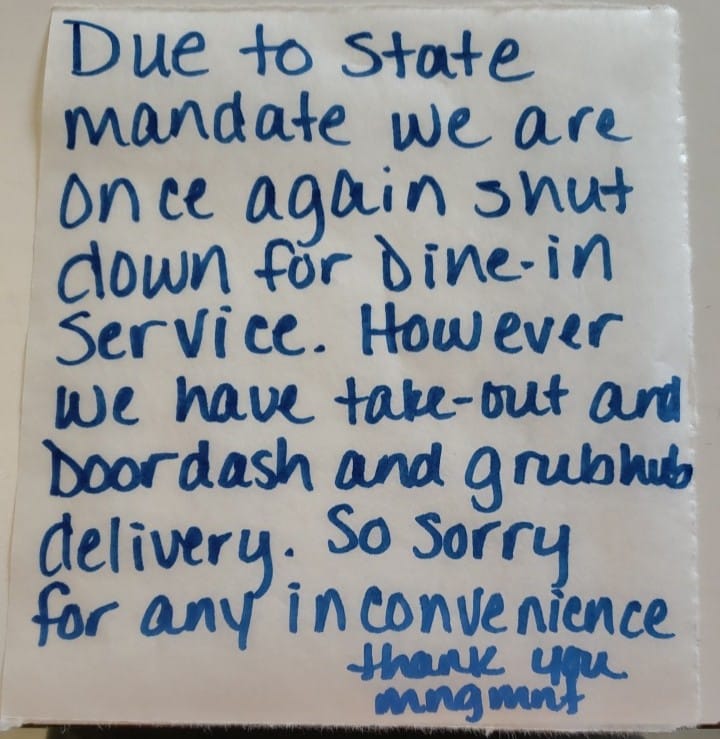 Due to State
mandate we are
once again shut
down for Dine-in
Service. However
we have take-out and
Doordash and grubhub
delivery. So Sorry
for any inconvenience
thank you
mngmnt